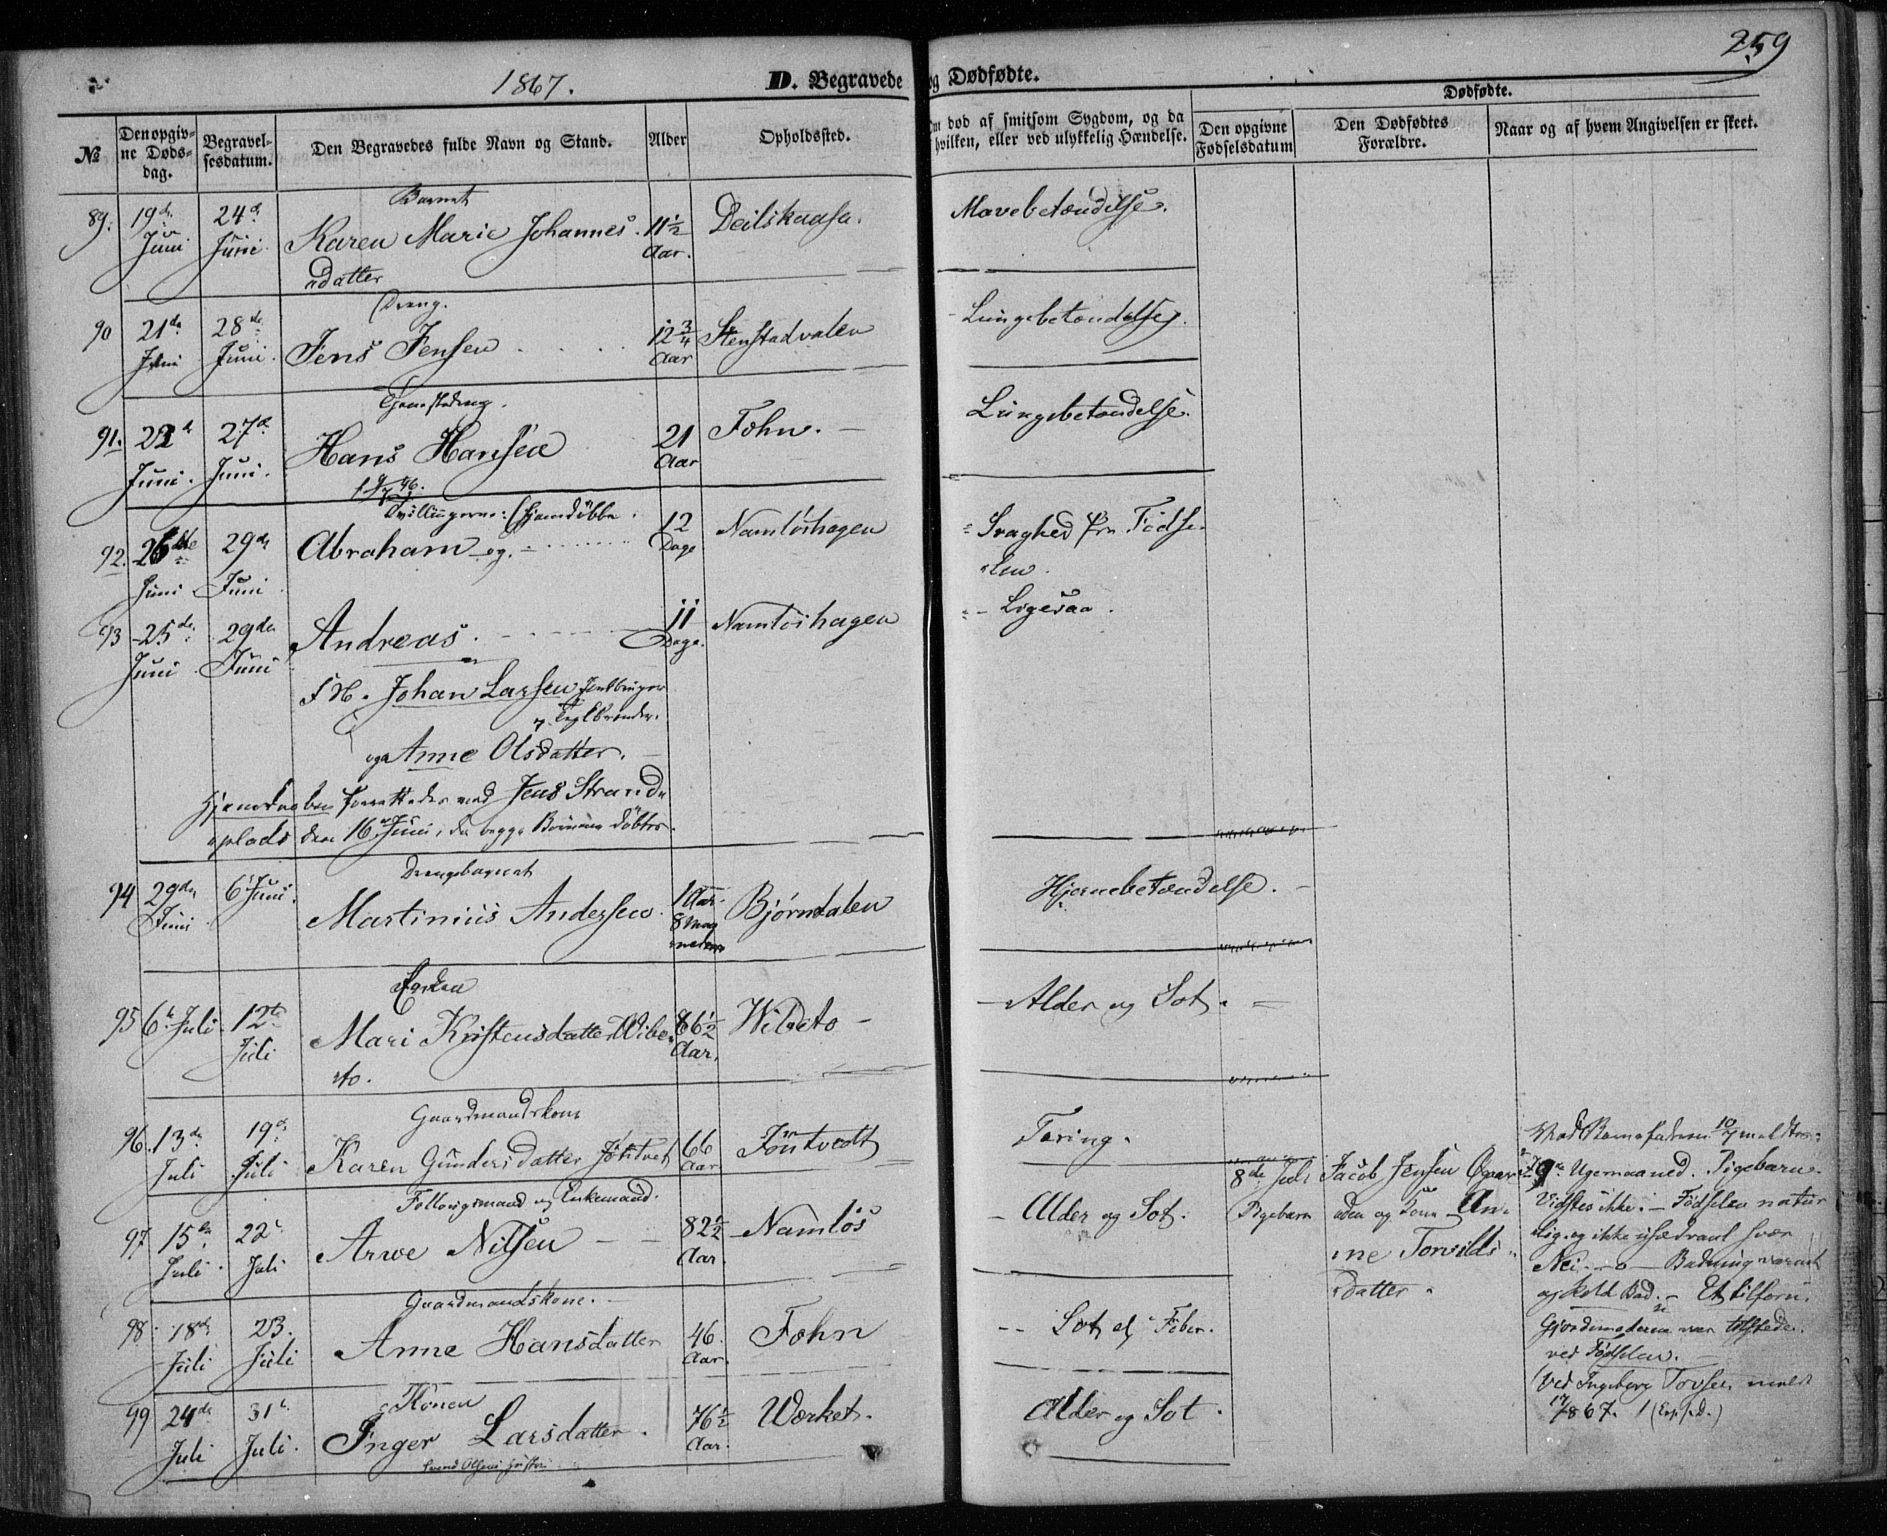 1867.
D. Begravede og Dødfødte.
259
№
Den opgivne Døds-dag.
Begravelsesdatum.
Den Begravedes fulde Navn og Stand.
Alder
Opholdssted.
død af smitsom Sygdom, og da hvilken, eller ved ulykkelig Hændelse.
Dødfødte.
Den opgivne Fødselsdatum
Den Dødfødtes Forældre.
Naar og af hvem Angivelsen er skeet.
Barnet
89. 19de Juni 24d Junii Karen Marie Johannes- 11½ Aar. Mavebetændelse.
datter
Dreng.
90 21de Juni 28de Juni Jens Jensen 12¾ Aar Stenstadvalen Lungebetændelse.
Tjenestedreng.
91. 22d Juni. 27d Juni. Hans Hansen 21 Aar Fohn. Lungebetændelse.
Tvillingerne: (hjemdøbte
92. 26de Juni 29de Juni Abraham og 12 Dage Namløshagen Svaghed fra Fødse-
len.
93 25de Juni 29de Juni Andreas. 11 Dage. Namløshagen Ligesaa.
Johan Larsen
og Anne Olsdatter.
Hjemdaaben forrettedes ved Jens Strand-
plads den 16 Juni, da begge Børnene døbtes.
Drengebarnet
94 29de Juni 6 Juni. Martinius Andersen. 1 Aar 8 Maaneder Bjørndalen Hjernebetændelse.
Enken
95 6te Juli 12te Juli Mari Kristensdatter Vibe- 86½ Aar. Wibeto Alder og Sot.
to.
Gaardmandskone
96. 13de Juli 19de Juli Karen Gundersdatter Jøntvet 66 Aar Jøntvedt Tæring.
Follougsmand og Enkemand.
97 15de Juli 22d Juli Arne Nilsen 82½ Aar. Namløs Alder og Sot.
Gaardmandskone.
98 18de Juli 23. Juli Anne Hansdatter 46 Aar. Fohn Sot Feber.
Konen
99 24de Juli 31te Juli. Inger Larsdatter. 76½ Aar. Værket. Alder og Sot.
Svend Olsens hustru
8de Juli
Pigebarn
Jacob Jensen
og Kone An-
ne Torvilds-
datter
Ved Barnefaderen 10/7
9de Ugemaaned. Pigebarn.
Vidstes ikke. Fødselen natur-
lig og ikke usædvanl. svær
Nei. Badning varmt
og koldt Bad. Et tilforn.
Gjordemoderen var tilstede
ved Fødselen.
Ved Ingeborg
17/7 867.